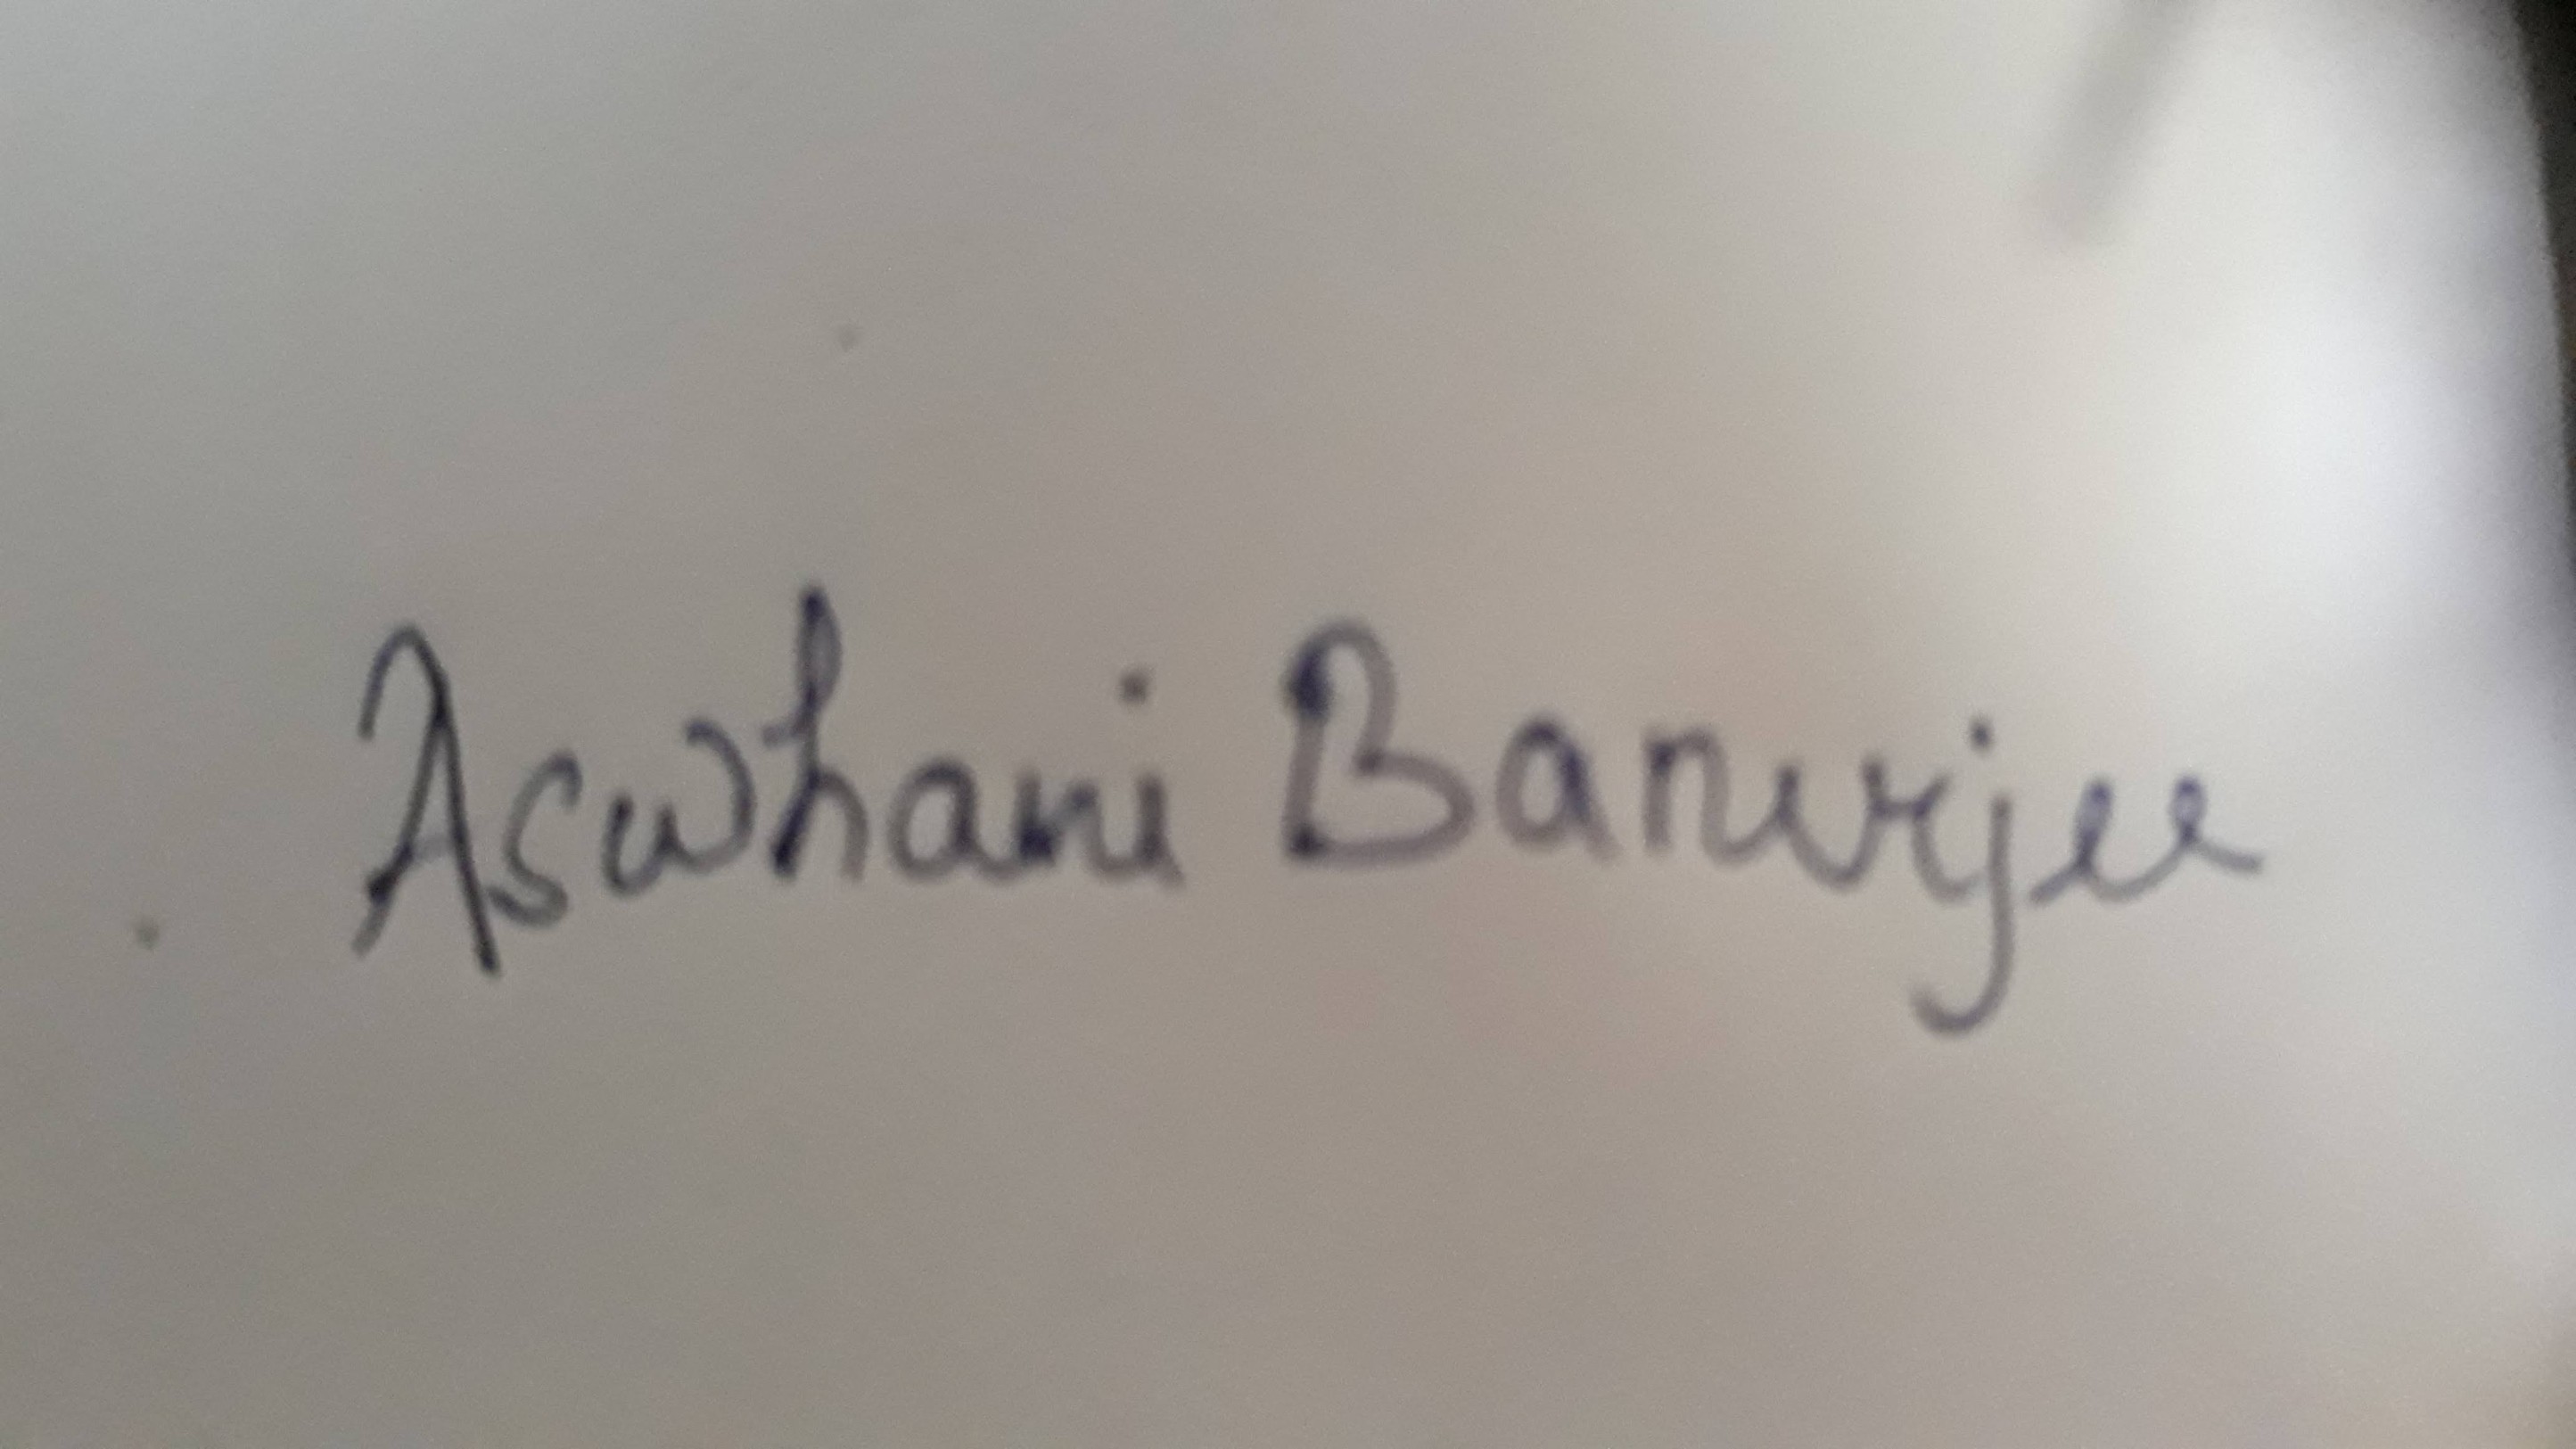 Aswhani Banerjee